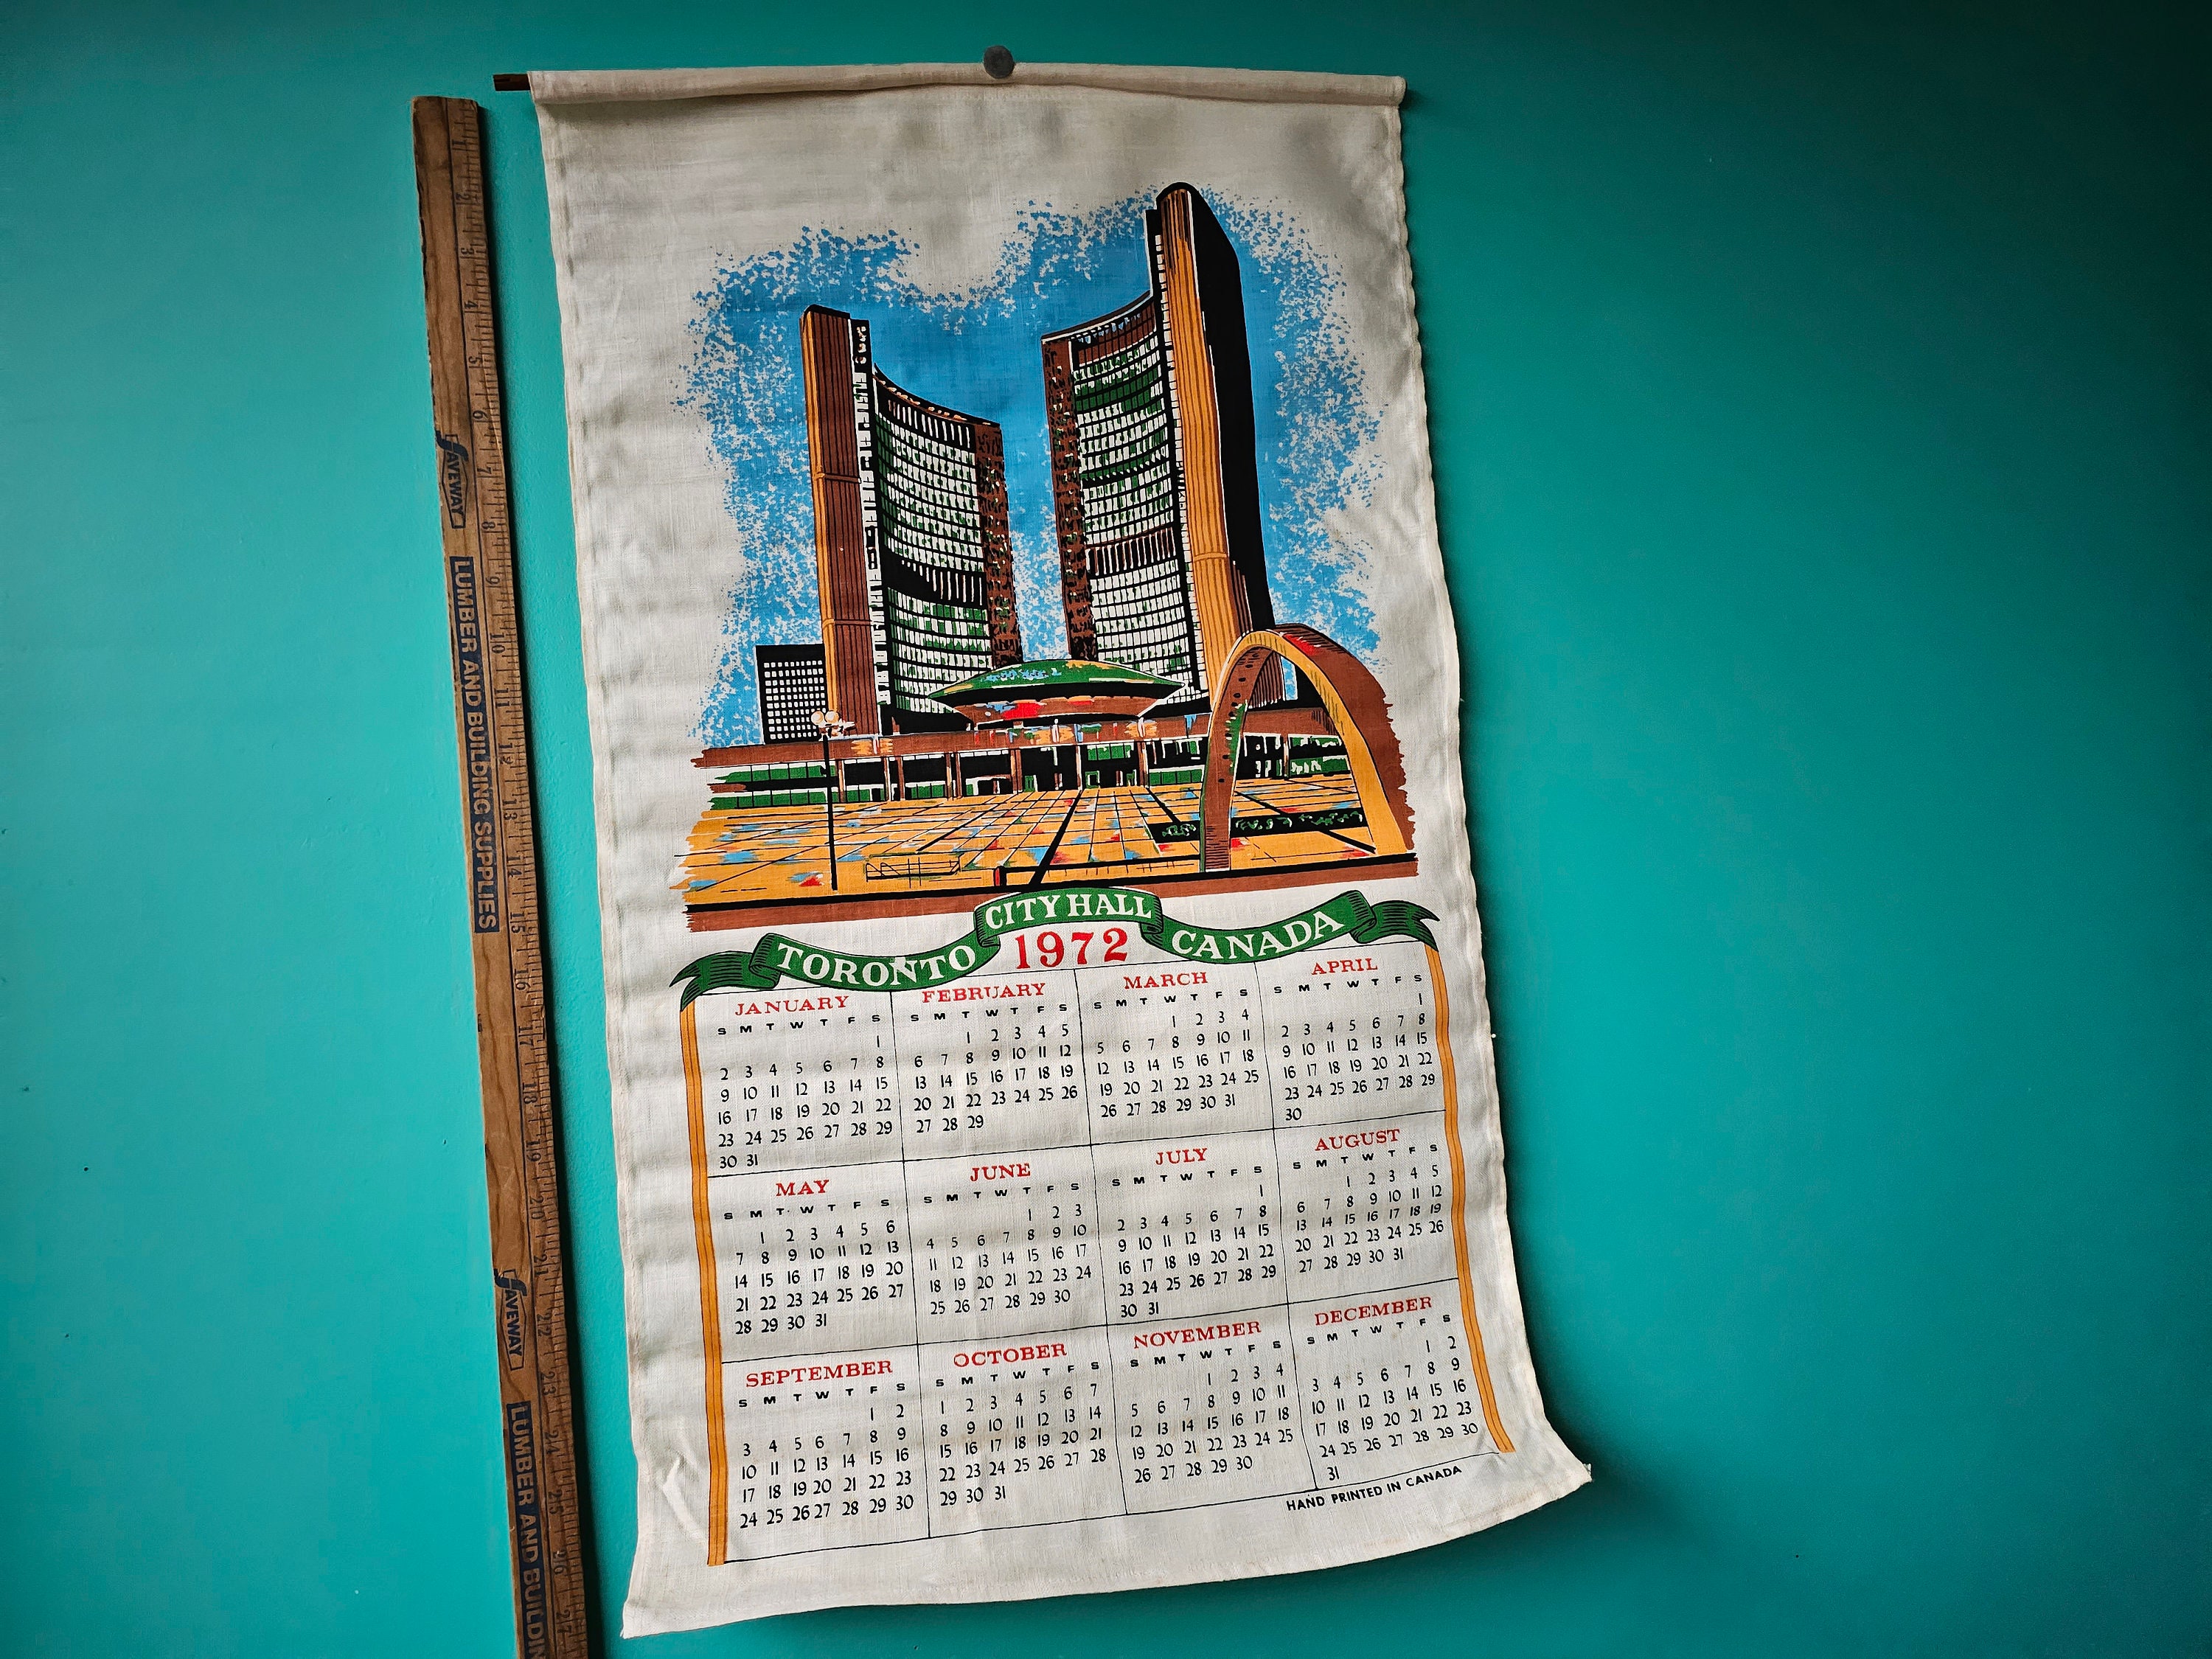 1 2 3 4 5 6 7 8 9 10 11 12 13 14 15 16 17 18 19 20 21 22 23 24 25 26 27
SAVEWAY
LUMBER AND BUILDING SUPPLIES
SAVEWAY
LUMBER AND BUILDIN
TORONTO CITY HALL CANADA
1972
JANUARY
S M T W T F S
1
2 3 4 5 6 7 8
9 10 11 12 13 14 15
16 17 18 19 20 21 22
23 24 25 26 27 28 29
30 31
FEBRUARY
S M T W T F S
1 2 3 4 5
6 7 8 9 10 11 12
13 14 15 16 17 18 19
20 21 22 23 24 25 26
27 28 29
MARCH
S M T W T F S
1 2 3 4
5 6 7 8 9 10 11
12 13 14 15 16 17 18
19 20 21 22 23 24 25
26 27 28 29 30 31
APRIL
S M T W T F S
1
2 3 4 5 6 7 8
9 10 11 12 13 14 15
16 17 18 19 20 21 22
23 24 25 26 27 28 29
30
MAY
S M T W T F S
1 2 3 4 5 6
7 8 9 10 11 12 13
14 15 16 17 18 19 20
21 22 23 24 25 26 27
28 29 30 31
JUNE
S M T W T F S
1 2 3
4 5 6 7 8 9 10
11 12 13 14 15 16 17
18 19 20 21 22 23 24
25 26 27 28 29 30
JULY
S M T W T F S
1
2 3 4 5 6 7 8
9 10 11 12 13 14 15
16 17 18 19 20 21 22
23 24 25 26 27 28 29
30 31
AUGUST
S M T W T F S
1 2 3 4 5
6 7 8 9 10 11 12
13 14 15 16 17 18 19
20 21 22 23 24 25 26
27 28 29 30 31
SEPTEMBER
S M T W T F S
1 2
3 4 5 6 7 8 9
10 11 12 13 14 15 16
17 18 19 20 21 22 23
24 25 26 27 28 29 30
OCTOBER
S M T W T F S
1 2 3 4 5 6 7
8 9 10 11 12 13 14
15 16 17 18 19 20 21
22 23 24 25 26 27 28
29 30 31
NOVEMBER
S M T W T F S
1 2 3 4
5 6 7 8 9 10 11
12 13 14 15 16 17 18
19 20 21 22 23 24 25
26 27 28 29 30
DECEMBER
S M T W T F S
1 2
3 4 5 6 7 8 9
10 11 12 13 14 15 16
17 18 19 20 21 22 23
24 25 26 27 28 29 30
31
HAND PRINTED IN CANADA